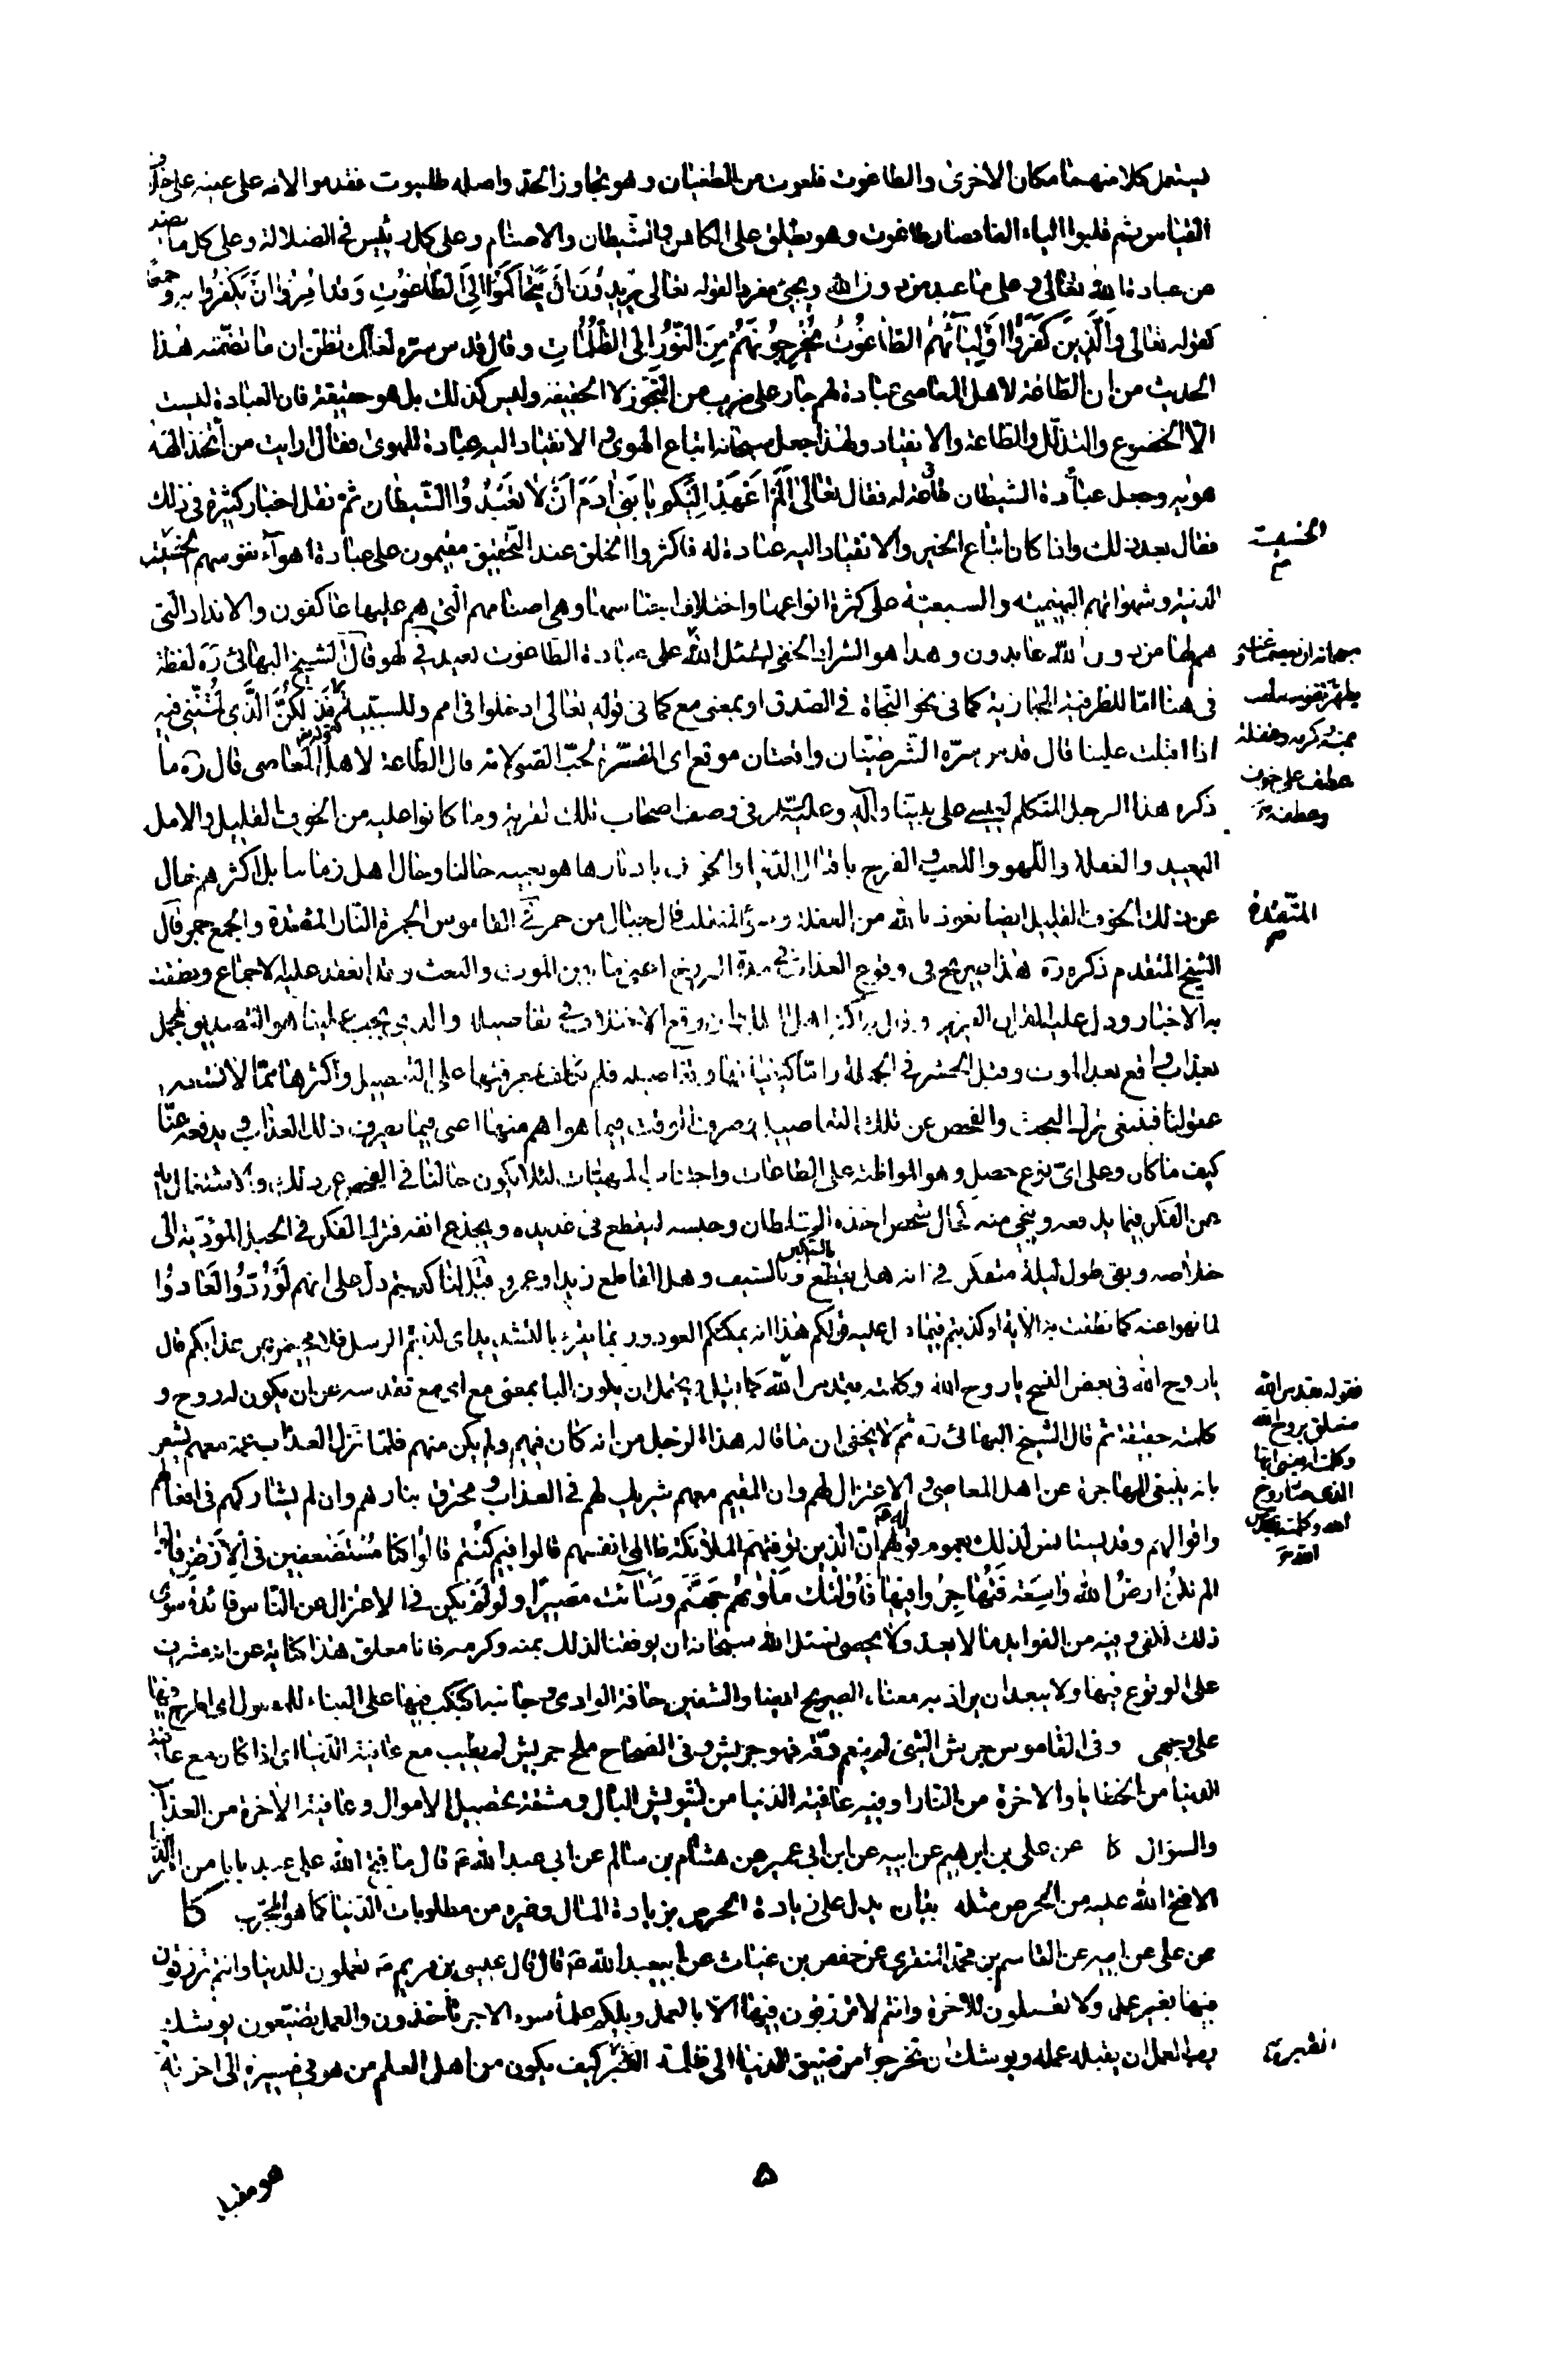 يستعمل كلا منهما مكان الاخرى والطاغوت فلعوت من الطغيان وهو تجاوز الحد واصله طغيوت فقدموا لامه على عينه على خلاف
القياس ثم قلبوا الياء الفا فصار طاغوت وهو يطلق على الكاهن والشيطان والاصنام وعلى كل رئيس في الضلالة وعلى كل ما يصد
عن عبادة الله تعالى وعلى ما عبد من دون الله ويجئ مفردا لقوله تعالى يُرِيدُونَ اَنْ يَتَحٰاكَمُوا اِلَى الطّٰاغُوتِ وَقَدْ اُمِرُوا اَنْ يَكْفُرُوا بِهِ وجمعا
كقوله تعالى وَالَّذِينَ كَفَرُوا اَوْلِيٰائُهُمُ الطّٰاغُوتُ يُخْرِجُونَهُمْ مِنَ النُّورِ اِلَى الظُّلُمٰاتِ وقال قدس سره لعلك تظن ان ما تضمنه هذا
الحديث من ان الطاعة لاهل المعاصى عبادة لهم جار على ضرب من التجوز لا الحقيقة وليس كذلك بل هو حقيقة فان العبادة ليست
الا الخضوع والتذلل والطاعة والانقياد ولهذا جعل سبحانه اتباع الهوى والانقياد اليه عبادة للهوى فقال ارايت من اتخذ الهه
هويه وجعل عبادة الشيطان طاعة له فقال تعالى اَلَمْ اَعْهَدْ اِلَيْكُمْ يٰا بَنِى اٰدَمَ اَنْ لٰا تَعْبُدُوا الشَّيْطٰانَ ثم نقل اخبار كثيرة في ذلك
فقال بعد ذلك واذا كان اتباع الغير والانقياد اليه عبادة له فاكثر الخلق عند التحقيق مقيمون على عبادة اهواء نفوسهم الخسيسة
الدنية وشهواتهم البهيمية والسبعية على كثرة انواعها واختلاف اجناسها وهى اصنامهم التى هم عليها عاكفون والانداد التى
هم لها من دون الله عابدون وهذا هو الشرك الخفى نسئل الله على عبادة الطاغوت لعيد في لهو قال الشيخ البهائى ره لفظة
فى هنا اما للظرفية المجازية كما فى نحو النجاة فى الصدق او بمعنى مع كما فى قوله تعالى ادخلوا فى امم وللسببية كقوله تعالى فَذٰلِكُنَّ الَّذِى لُمْتُنَّنِى فِيهِ
اذا اقبلت علينا قال قدس سره الشرطيتان واقعتان موقع اى المفسرة لحب الصبى لامه قال الطاعة لاهل المعاصى قال ره ما
ذكره هذا الرجل المتكلم لعيسى على نبينا وآله وعليه السلم فى وصف اصحاب تلك القرية وما كانوا عليه من الخوف القليل والامل
البعيد والغفلة واللهو واللعب والفرح باقبال الدنيا والحزن بادبارها هو بعينه حالنا وحال اهل زماننا بل اكثرهم خال
عن ذلك الخوف القليل ايضا نعوذ بالله من الغفلة وسوء المنقلب قال جبال من جمر فى القاموس الجمرة النار المتقدة والجمع جمر قال
الشيخ المتقدم ذكره ره هذا صريح فى وقوع العذاب فى مدة البرزخ اعنى ما بين الموت والبعث وقد انعقد عليه الاجماع ونطقت
به الاخبار ودل عليه القرآن العزيز وقال به اكثر اهل الملل وان وقع الاختلاف في تفاصيله والذى يجب علينا هو التصديق المجمل
بعذاب واقع بعد الموت وقبل الحشر فى الجملة واما كيفياته وتفاصيله فلم نكلف بمعرفتها على التفصيل واكثرها مما لا تسعه
عقولنا فينبغى ترك البحث والفحص عن تلك التفاصيل وصرف الوقت فيما هو اهم منها اعنى فيما يصرف ذلك العذاب ويدفعه عنا
كيف ما كان وعلى اى نوع حصل وهو المواظبة على الطاعات واجتناب المنهيات لئلا يكون حالنا فى الفحص عن ذلك والاشتغال به
عن الفكر فيما يدفعه وينجى منه كحال شخص اخذه السلطان وحبسه ليقطع فى غد يده ويجدع انفه فترك الفكر فى الحيل المؤدية الى
خلاصه وبقى طول ليلة متفكر فى انه هل يقطع بالسكين او بالسيف وهل القاطع زيد او عمرو قيل لنا كذبتم دل على انهم لَوْ رُدُّوا لَعٰادُوا
لما نهوا عنه كما نطقت به الاية او كذبتم فيما دل عليه قولكم هذا انه يمكنكم العود وربما يقرء بالتشديد اى كذبتم الرسل
يا روح الله فى بعض النسخ يا روح الله وكلمته بقدس الله يحتمل ان يكون الباء بمعنى مع اى مع تقدسه عن ان يكون له روح و
كلمة حقيقة ثم قال الشيخ البهائى ره ثم لا يخفى ان ما قاله هذا الرجل من انه كان فيهم ولم يكن منهم فلما نزل العذاب عمه معهم يشعر
بانه ينبغى المهاجرة عن اهل المعاصى والاعتزال لهم وان المقيم معهم شريك لهم فى العذاب ومحترق بنارهم وان لم يشاركهم فى افعالهم
واقوالهم وقد يستانس لذلك بعموم قوله تعالى اِنَّ الذين توفيهم الملائكة ظالمى انفسهم قالوا فيم كنتم قالوا كنا مُسْتَضْعَفِينَ فِى الْاَرْضِ قالوا
الم تكن اَرْضُ اللهِ وٰاسِعَة فَتُهٰاجِرُوا فِيهٰا فَاُولٰئِكَ مَأْوٰيهُمْ جَهَنَّمُ وَسٰائَتْ مَصِيرًا ولو لم يكن فى الاعتزال عن الناس فائدة سوى
ذلك لكفى وفيه من الفوايد ما لا يعد ولا يحصى نسئل الله سبحانه ان يوفقنا لذلك بمنه وكرمه فانا معلق هذا كناية عن انه مشرف
على الوقوع فيها ولا يبعد ان يراد به معناه الصريح ايضا والشفير حافة الوادى وجانبه اكبكب فيها على البناء للمفعول اى اطرح فيها
على وجهى وفى القاموس جرش الشئ لم ينعم دقه فهو جريش وفى الصحاح ملح جريش لم يطيب مع عافية الدنيا اى اذا كان مع عافية
الدنيا من الخطايا والاخرة من النار او فيه عافية الدنيا من تشويش البال ومشقة تحصيل الاموال وعافية الاخرة من العذاب
والسؤال كا عن على بن ابرهيم عن ابيه عن ابن ابى عمير عن هشام بن سالم عن ابى عبد الله ع قال ما فتح الله على عبد بابا من امر الدنيا
الا فتح الله عليه من الحرص مثله بيان يدل على زيادة الحرص بزيادة المال وغيره من مطلوبات الدنيا كما هو المجرب كا
عن على عن ابيه عن القاسم بن محمد المنقرى عن حفص بن غياث عن ابيعبد الله ع قال قال عيسى بن مريم ع تعملون للدنيا وانتم ترزقون
فيها بغير عمل ولا تعملون للاخرة وانتم لا ترزقون فيها الا بالعمل ويلكم علماء سوء الاجر تاخذون والعمل تضيعون يوشك
رب العمل ان يقبل عمله ويوشك ان تخرجوا من ضيق الدنيا الى ظلمة القبر كيف يكون من اهل العلم من هو فى مسيره الى اخرته
الخسيسة
م
سبحانه ان يعصمنا عنه
ويطهر نفوسنا منه
بمنه وكرمه وغفلة
عطف على خوف
وعطفه
المتقدة
م
فقوله بقدس الله
متعلق بروح الله
وكلمته
الذى صار روح
الله وكلمته بقدس
الله
القبر
۵
هو مقبل